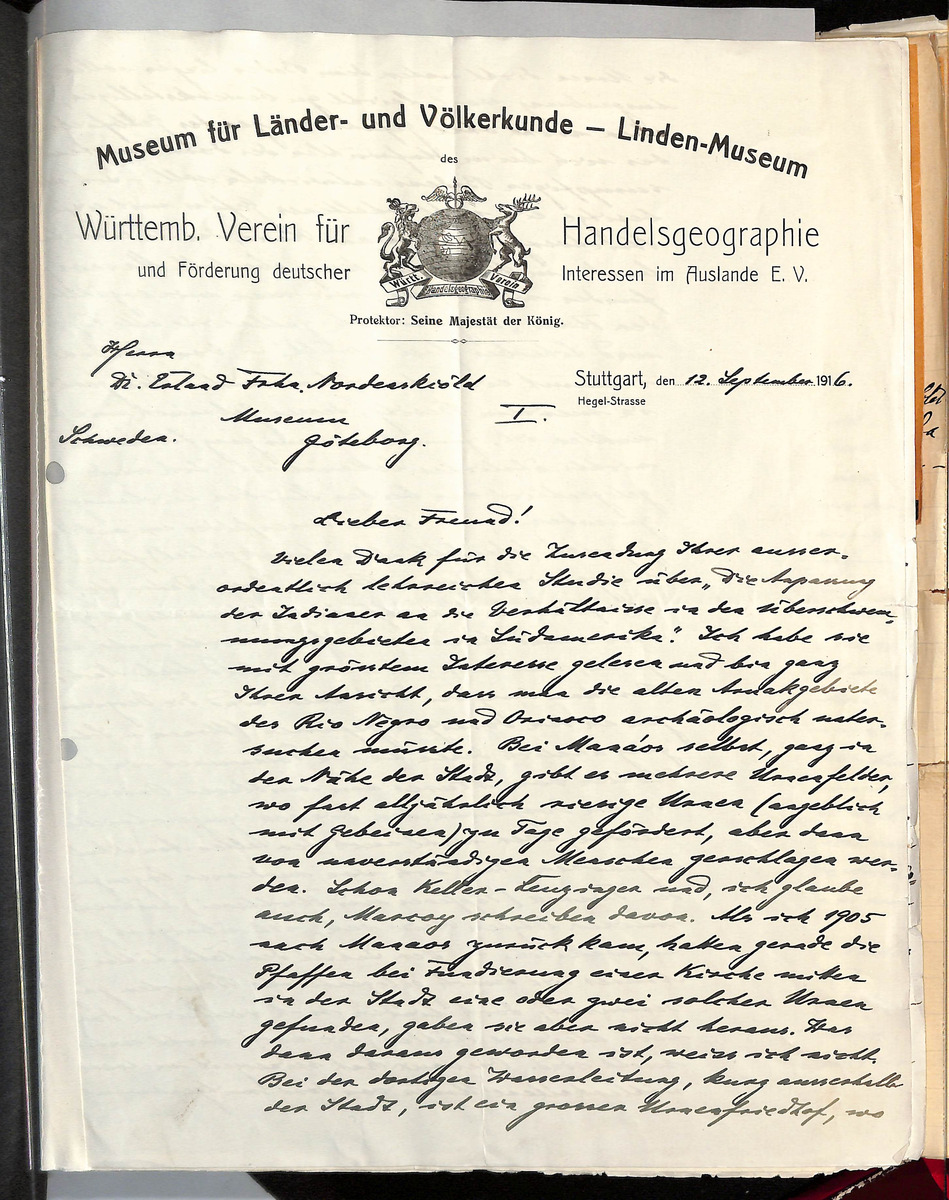 Museum für Länder- und Völkerkunde — Linden-Museum
des
Württemb. Verein für Handelsgeographie
und Förderung deutscher Interessen im Auslande E. V.
Württ. Verein f.
Handelsgeographie
Protektor: Seine Majestät der König.
Herrn
Dr. Erland Frhn. Nordenskiöld
Stuttgart, den 12. September 1916.
Hegel-Strasse
Museum
I.
Schweden. Göteborg.
Lieber Freund!
Vielen Dank für die Zusendung Ihrer ausser-
ordentlich lehrreichen Studie über „Die Anpassung
der Indianer an die Verhältnisse in den Überschwem-
mungsgebieten in Südamerika". Ich habe sie
mit grösstem Interesse gelesen und bin ganz
Ihrer Ansicht, dass man die alten Aruakgebiete
des Rio Negro und Orinoco archäologisch unter-
suchen müsste. Bei Manáos selbst, ganz in
der Nähe der Stadt, gibt es mehrere Urnenfelder,
wo fast alljährlich riesige Urnen (angeblich
mit Gebeinen) zu Tage gefördert, aber dann
von unverständigen Menschen zerschlagen wer-
den. Schon Keller-Leuzinger und, ich glaube
auch, Marcoy schreiben davon. Als ich 1905
nach Manaos zurück kam, hatten gerade die
Pfaffen bei Fundierung einer Kirche mitten
in der Stadt eine oder zwei solcher Urnen
gefunden, gaben sie aber nicht heraus. Was
dann daraus geworden ist, weiss ich nicht.
Bei der dortigen Wasserleitung, kurz ausserhalb
der Stadt, ist ein grosser Urnenfriedhof, wo